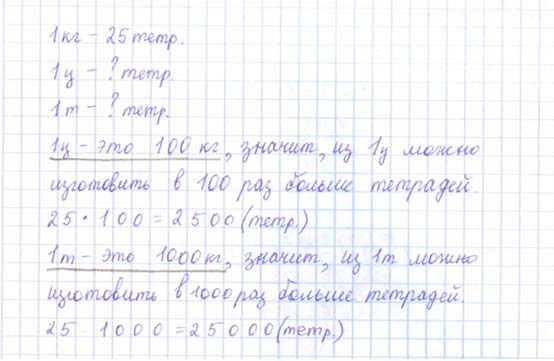 1кг – 25 тетр.
1ц – ? тетр.
1т – ? тетр.
1ц – это 100 кг, значит, из 1ц можно
изготовить в 100 раз больше тетрадей.
25 · 100 = 2500 (тетр.)
1т – это 1000 кг, значит, из 1т можно
изготовить в 1000 раз больше тетрадей.
25 · 1000 = 25000 (тетр.)